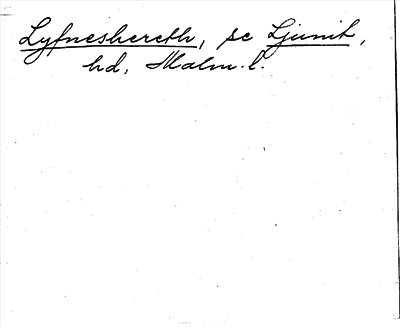 Lyfneshereth, se Ljunit,
hd, Malm. l.